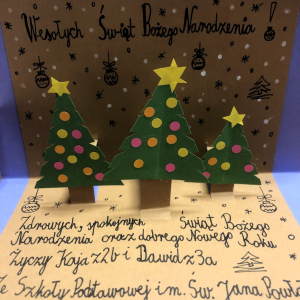 Wesołych Świąt Bożego Narodzenia!
Zdrowych, spokojnych Świąt Bożego
Narodzenia oraz dobrego Nowego Roku
Życzy Kaja z 2b i Dawid z 3a
Ze Szkoły Podstawowej im. Św. Jana Pawła